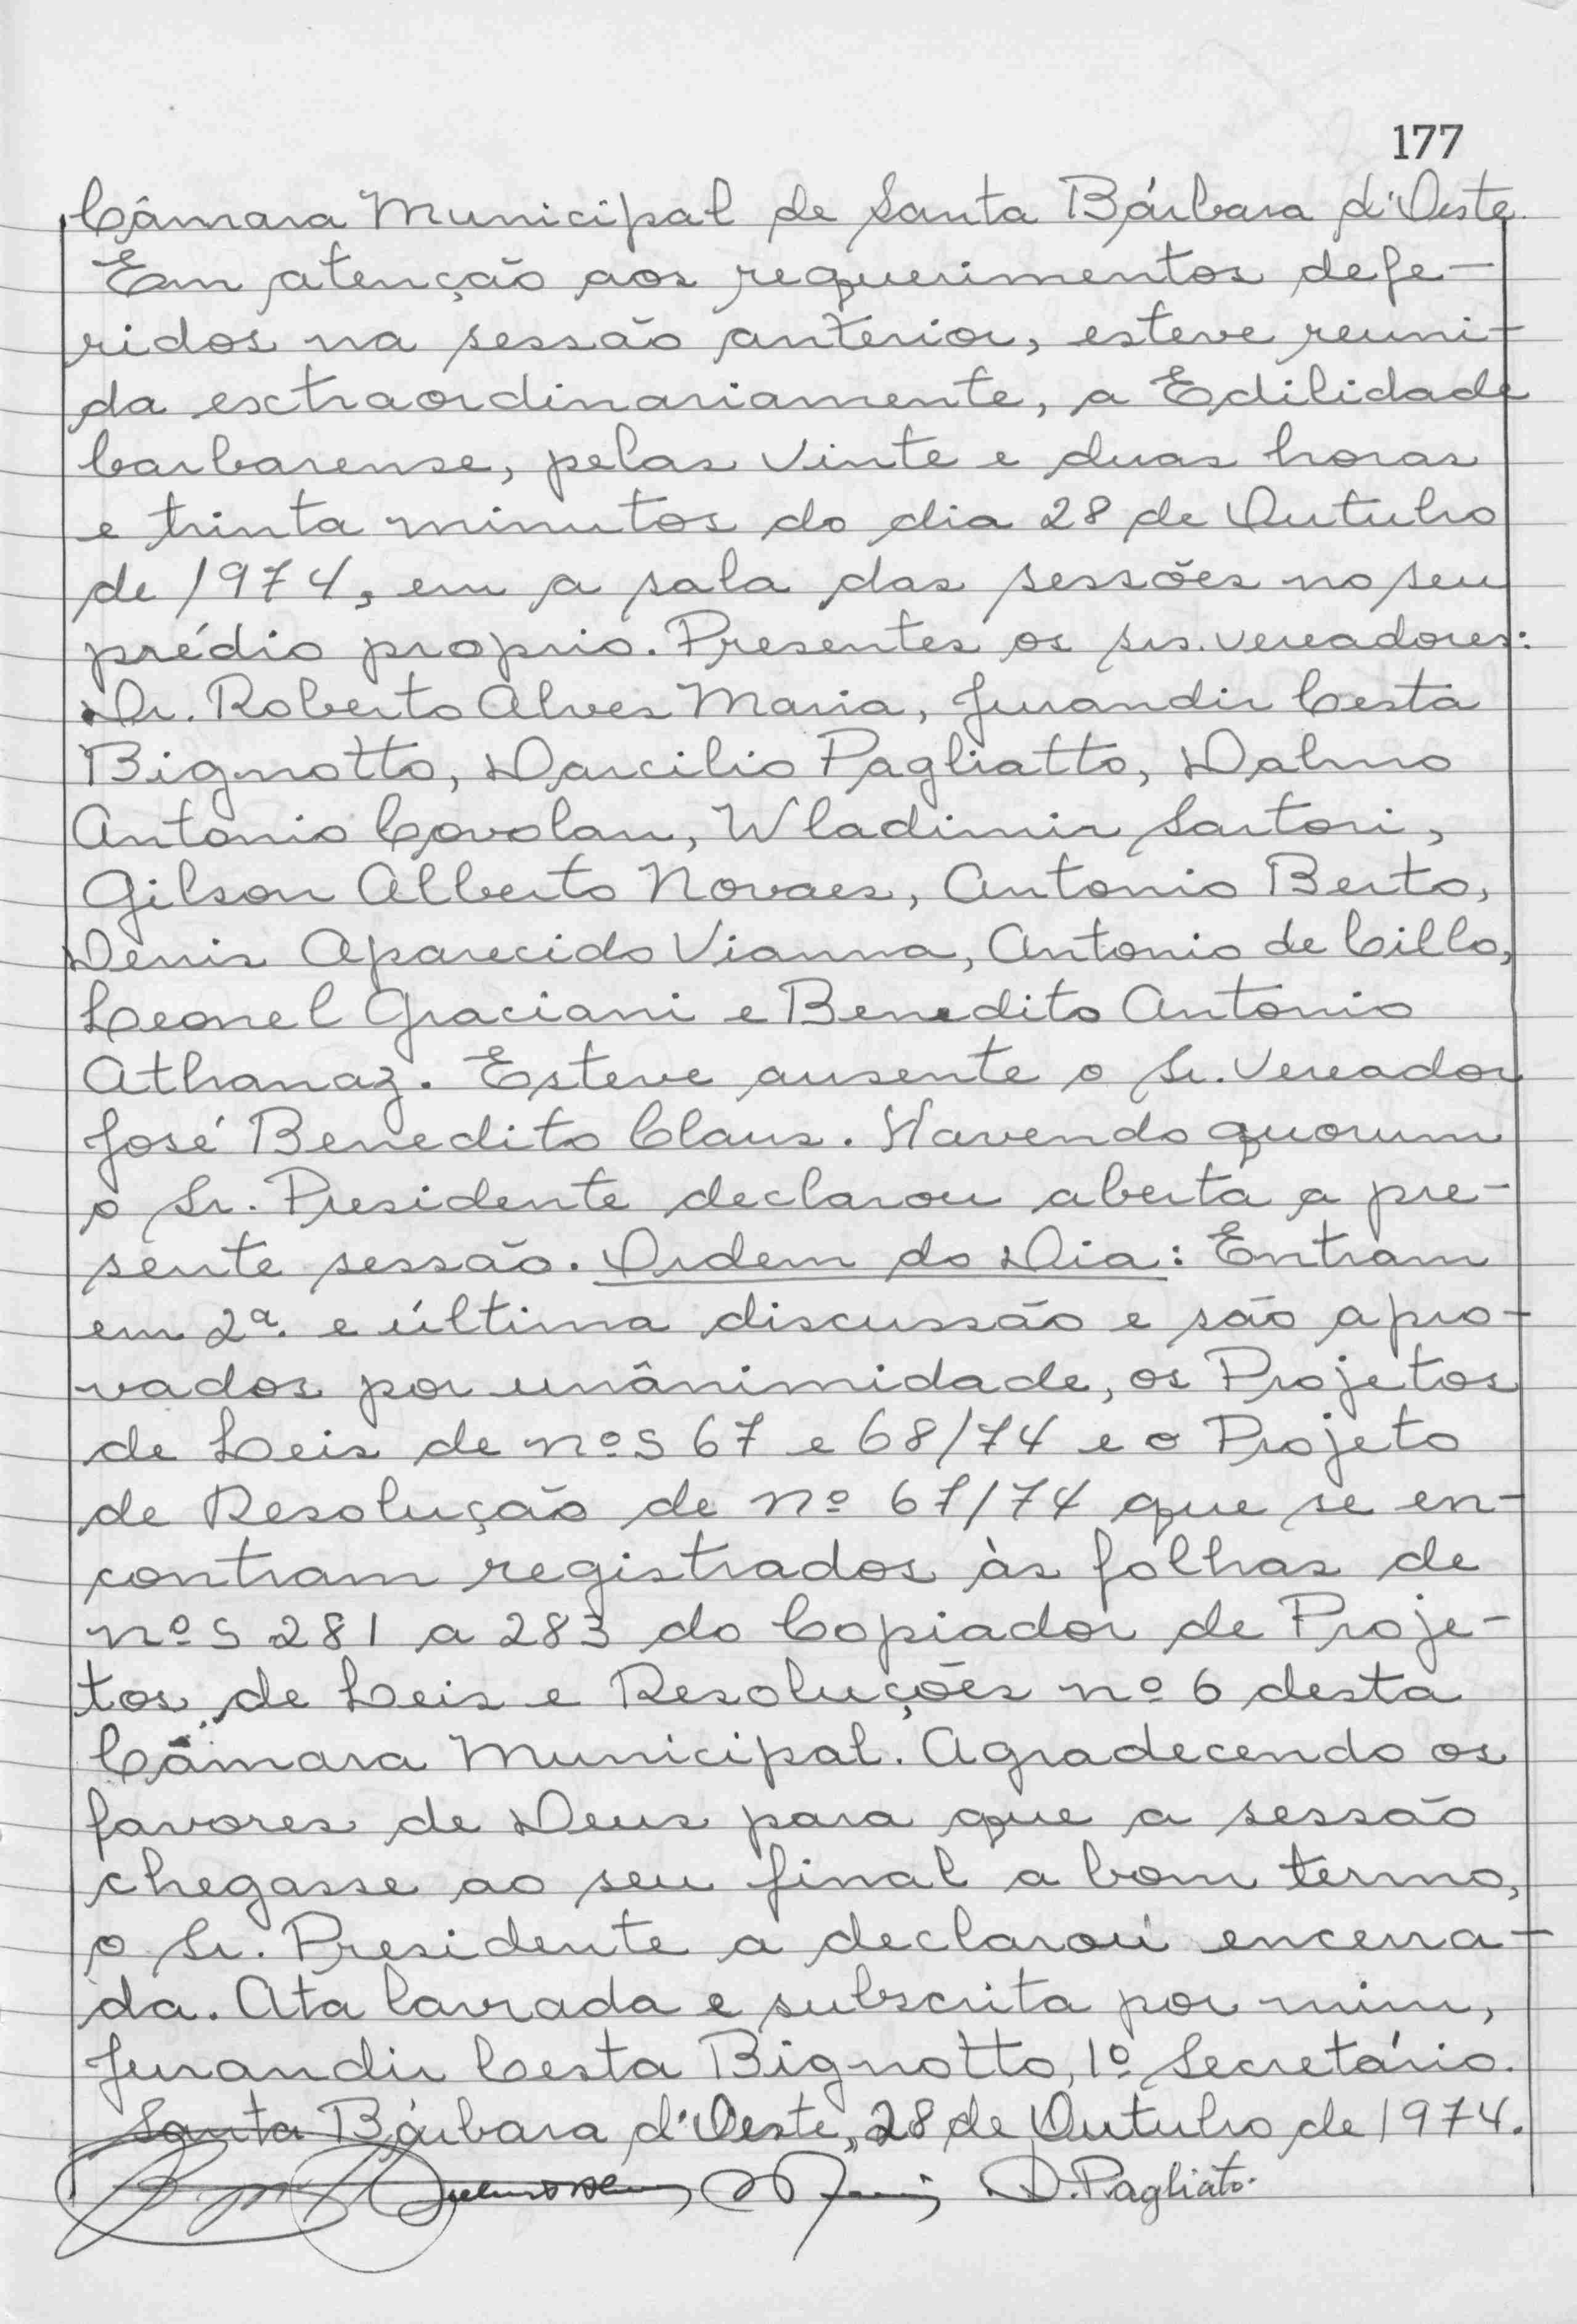 177
Câmara Municipal de Santa Bárbara d'Oeste.
Em atenção aos requerimentos defe-
ridos na sessão anterior, esteve reuni-
da extraordinariamente, a Edilidade
barbarense, pelas vinte e duas horas
e trinta minutos do dia 28 de Outubro
de 1974, em a sala das sessões no seu
prédio proprio. Presentes os srs. vereadores:
Dr. Roberto Alves Maria, Jurandir Cesta
Bignotto, Darcilio Pagliatto, Dalmo
Antonio Covolan, Wladimir Sartori,
Gilson Alberto Novaes, Antonio Berto,
Denis Aparecido Vianna, Antonio de Cillo,
Leonel Graciani e Benedito Antonio
Athanaz. Esteve ausente o Sr. Vereador
José Benedito Claus. Havendo quorum
o Sr. Presidente declarou aberta a pre-
sente sessão. Ordem do Dia: Entram
em 2ª. e última discussão e são apro-
vados por unânimidade, os Projetos
de Leis de nºs 67 e 68/74 e o Projeto
de Resolução de nº 67/74 que se en-
contram registrados às folhas de
nºs 281 a 283 do Copiador de Proje-
tos de Leis e Resoluções nº 6 desta
Câmara Municipal. Agradecendo os
favores de Deus para que a sessão
chegasse ao seu final a bom termo,
o Sr. Presidente a declarou encerra-
da. Ata lavrada e subscrita por mim,
Jurandir Cesta Bignotto, 1º Secretário.
Santa Bárbara d'Oeste, 28 de Outubro de 1974.
D. Pagliato